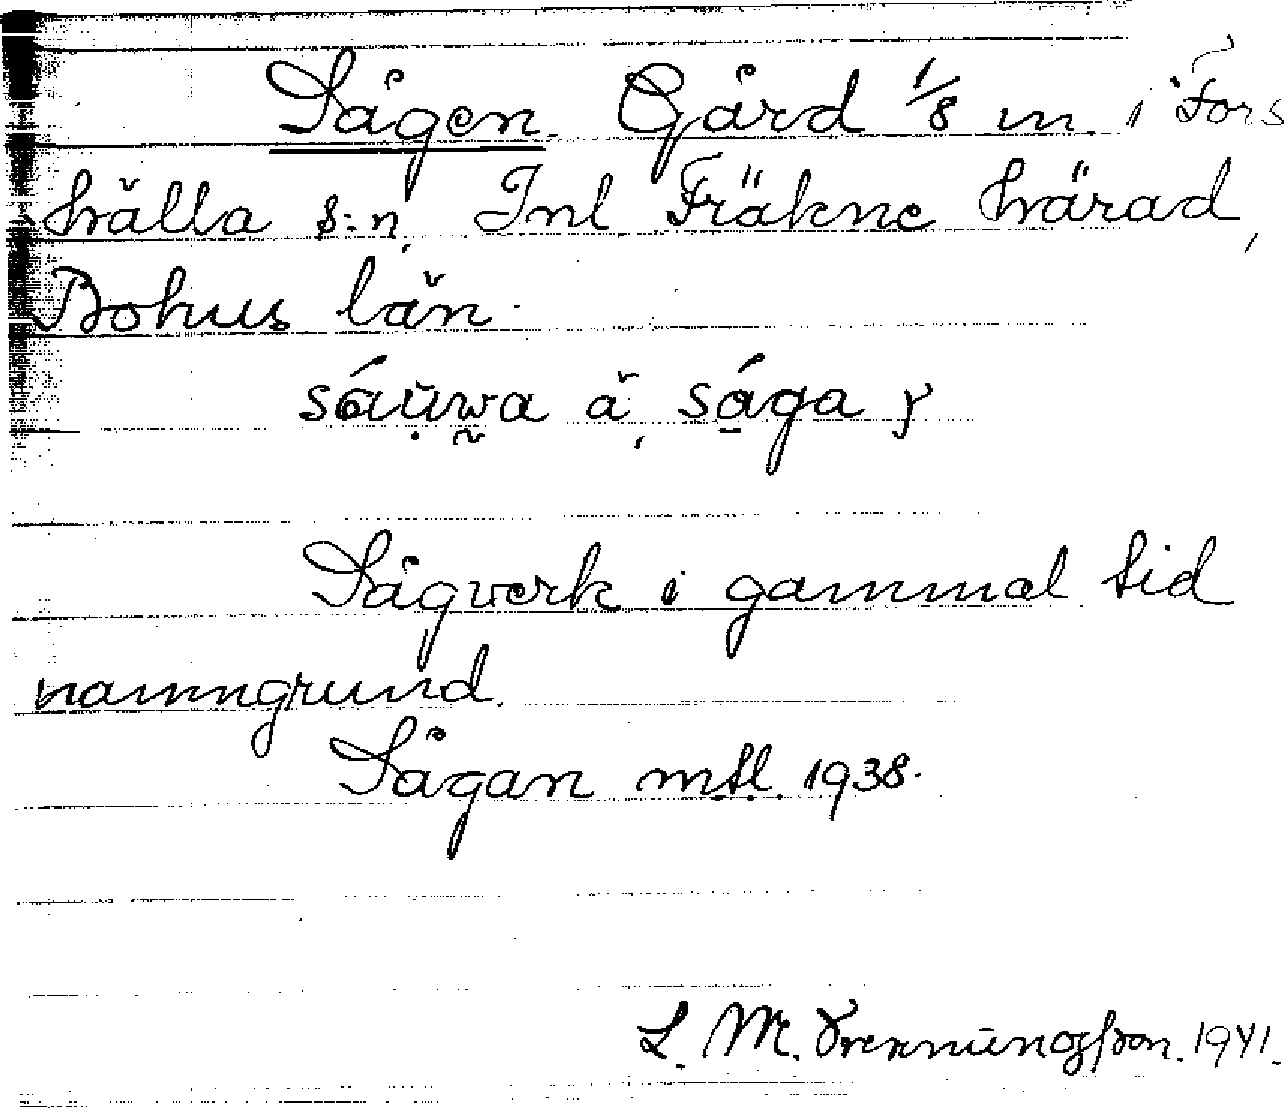 Sågen. Gård 1/8 m. i Fors
hälla s:n, Inl Fräkne härad,
Bohus län.
sáŭwa ă, sága
Sågverk i gammal tid
namngrund.
Sågan mtl. 1938.
L. M. 1941.